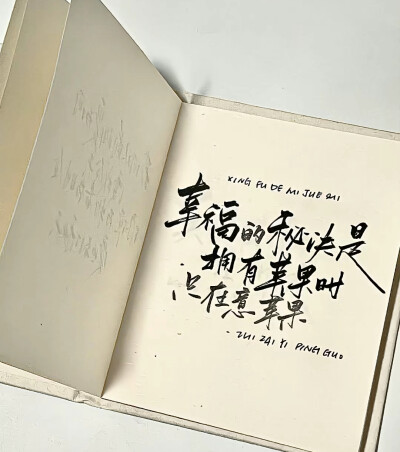 XING FU DE MI JUE SHI
幸福的秘决是
拥有苹果时
只在意苹果
- ZHI ZAI YI PING GUO